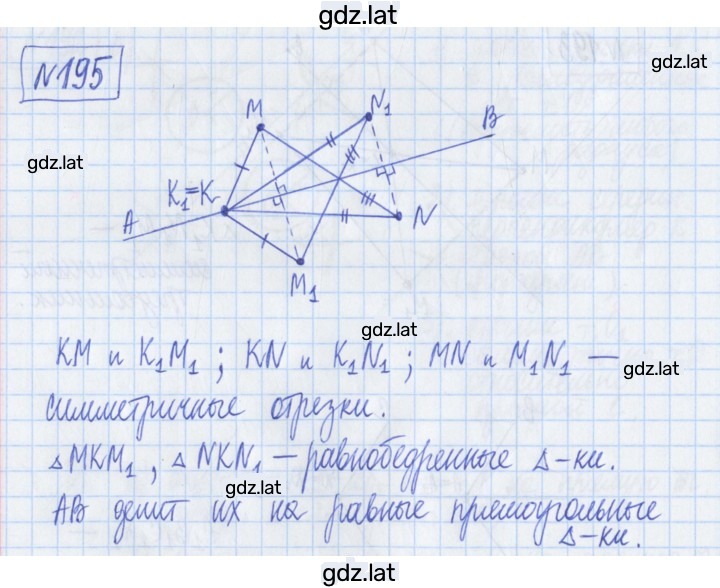 gdz.lat
N195
gdz.lat
M
N₁
B
gdz.lat
K₁=K
A
N
M₁
gdz.lat
KM и K₁M₁ ; KN и K₁N₁ ; MN и M₁N₁ —
gdz.lat
симметричные отрезки.
△MKM₁ , △NKN₁ — равнобедренные △-ки.
gdz.lat
AB делит их на равные прямоугольные
△-ки.
gdz.lat